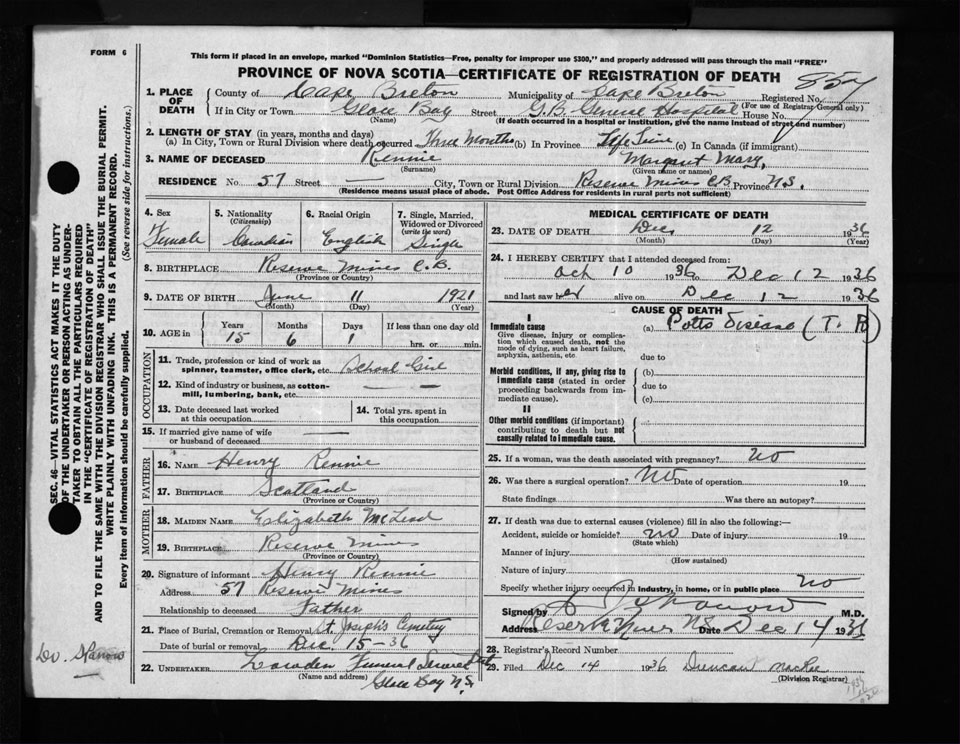 FORM 6
This form if placed in an envelope, marked "Dominion Statistics—Free, penalty for improper use $300," and properly addressed will pass through the mail "FREE"
PROVINCE OF NOVA SCOTIA—CERTIFICATE OF REGISTRATION OF DEATH
857
1. PLACE OF DEATH
County of Cape Breton Municipality of Cape Breton Registered No.
(For use of Registrar General only)
If in City or Town Glace Bay Street G.B. General Hospital House No.
(Name) (If death occurred in a hospital or institution, give the name instead of street and number)
2. LENGTH OF STAY (in years, months and days)
(a) In City, Town or Rural Division where death occurred Three Months (b) In Province Life Time (c) In Canada (if immigrant)
3. NAME OF DECEASED Rennie Margaret Mary,
(Surname) (Given name or names)
RESIDENCE No. 57 Street — City, Town or Rural Division Reserve Mines C.B. Province N.S.
(Residence means usual place of abode. Post Office Address for residents in rural parts not sufficient)
4. Sex
Female
5. Nationality
(Citizenship)
Canadian
6. Racial Origin
English
7. Single, Married, Widowed or Divorced
(write the word)
Single
8. BIRTHPLACE Reserve Mines C.B.
(Province or Country)
9. DATE OF BIRTH June 11 1921
(Month) (Day) (Year)
10. AGE in
Years Months Days If less than one day old
15 6 1 hrs. or min.
OCCUPATION
11. Trade, profession or kind of work as spinner, teamster, office clerk, etc. School Girl
12. Kind of industry or business, as cotton-mill, lumbering, bank, etc. —
13. Date deceased last worked at this occupation
14. Total yrs. spent in this occupation
15. If married give name of wife or husband of deceased —
FATHER
16. NAME Henry Rennie
17. BIRTHPLACE Scotland
(Province or Country)
MOTHER
18. MAIDEN NAME Elizabeth McLeod
19. BIRTHPLACE Reserve Mines
(Province or Country)
20. Signature of informant Henry Rennie
Address 57 Reserve Mines
Relationship to deceased Father
21. Place of Burial, Cremation or Removal St. Joseph's Cemetery
Date of burial or removal Dec. 15-36
22. UNDERTAKER Funeral Service
(Name and address)
Glace Bay N.S.
MEDICAL CERTIFICATE OF DEATH
23. DATE OF DEATH Dec. 12 1936
(Month) (Day) (Year)
24. I HEREBY CERTIFY that I attended deceased from:
Oct 10 1936 to Dec 12 1936
and last saw her alive on Dec 12 1936
CAUSE OF DEATH
I
Immediate cause
Give disease, injury or complication which caused death, not the mode of dying, such as heart failure, asphyxia, asthenia, etc.
(a) Potts Disease (T.B)
due to
Morbid conditions, if any, giving rise to immediate cause (stated in order proceeding backwards from immediate cause).
(b)
due to
(c)
II
Other morbid conditions (if important) contributing to death but not causally related to immediate cause.
25. If a woman, was the death associated with pregnancy? No
26. Was there a surgical operation? No Date of operation 19
State findings Was there an autopsy?
27. If death was due to external causes (violence) fill in also the following:—
Accident, suicide or homicide? No Date of injury 19
(State which)
Manner of injury
(How sustained)
Nature of injury
Specify whether injury occurred in industry, in home, or in public place No
Signed by M.D.
Address Reserve Mines N.S. Date Dec 14 1936
28. Registrar's Record Number
29. Filed Dec 14 1936 Duncan MacRae
(Division Registrar)
SEC. 46—VITAL STATISTICS ACT MAKES IT THE DUTY
OF THE UNDERTAKER OR PERSON ACTING AS UNDER-
TAKER TO OBTAIN ALL THE PARTICULARS REQUIRED
IN THE "CERTIFICATE OF REGISTRATION OF DEATH"
AND TO FILE THE SAME WITH THE DIVISION REGISTRAR WHO SHALL ISSUE THE BURIAL PERMIT.
WRITE PLAINLY WITH UNFADING INK. THIS IS A PERMANENT RECORD.
Every item of information should be carefully supplied. (See reverse side for instructions.)
Dv.